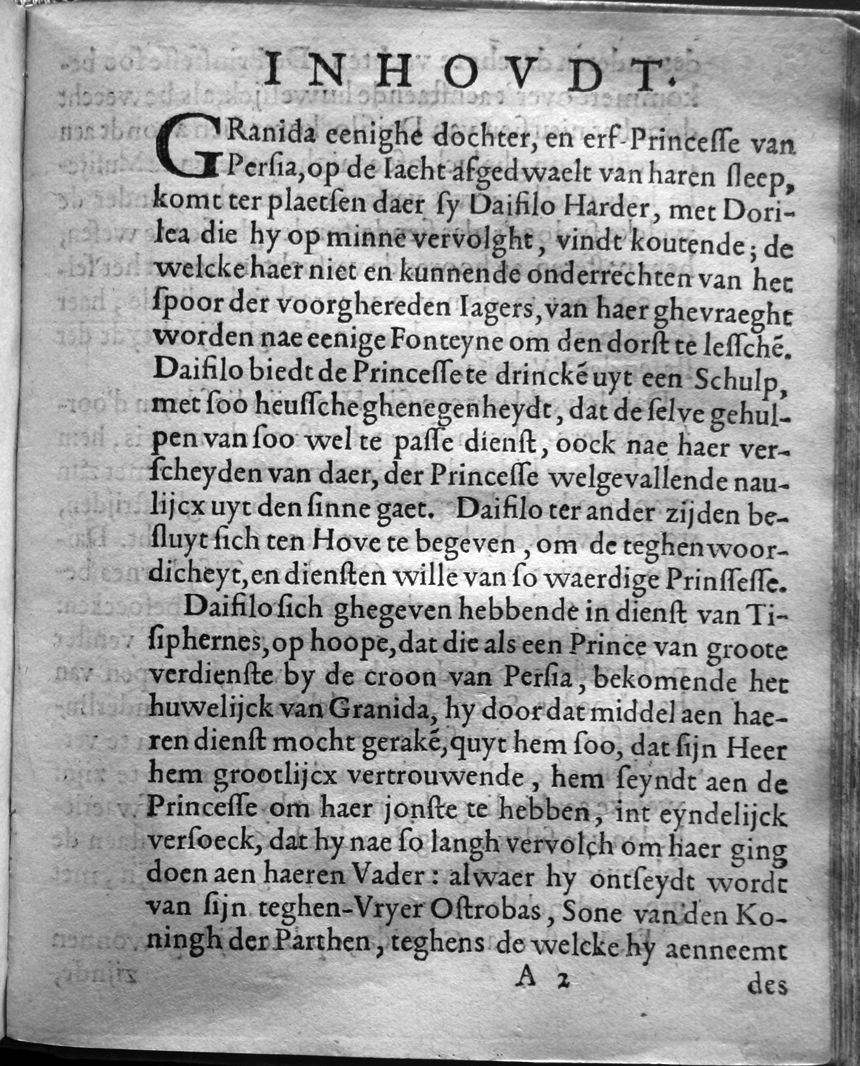 INHOVDT.
GRanida eenighe dochter, en erf-Princeſſe van
Perſia, op de Iacht afgedwaelt van haren ſleep,
komt ter plaetſen daer ſy Daifilo Harder, met Dori-
lea die hy op minne vervolght, vindt koutende; de
welcke haer niet en kunnende onderrechten van het
ſpoor der voorghereden Iagers, van haer ghevraeght
worden nae eenige Fonteyne om den dorſt te leſſchē.
Daifilo biedt de Princeſſe te drinckē uyt een Schulp,
met ſoo heuſſche ghenegenheydt, dat de ſelve gehul-
pen van ſoo wel te paſſe dienſt, oock nae haer ver-
ſcheyden van daer, der Princeſſe welgevallende nau-
lijcx uyt den ſinne gaet. Daifilo ter ander zijden be-
ſluyt ſich ten Hove te begeven, om de teghenwoor-
dicheyt, en dienſten wille van ſo waerdige Prinſſeſſe.
Daifilo ſich ghegeven hebbende in dienſt van Ti-
ſiphernes, op hoope, dat die als een Prince van groote
verdienſte by de croon van Perſia, bekomende het
huwelijck van Granida, hy door dat middel aen hae-
ren dienſt mocht gerakē, quyt hem ſoo, dat ſijn Heer
hem grootlijcx vertrouwende, hem ſeyndt aen de
Princeſſe om haer jonſte te hebben, int eyndelijck
verſoeck, dat hy nae ſo langh vervolch om haer ging
doen aen haeren Vader: alwaer hy ontſeydt wordt
van ſijn teghen-Vryer Oſtrobas, Sone van den Ko-
ningh der Parthen, teghens de welcke hy aenneemt
A 2 des